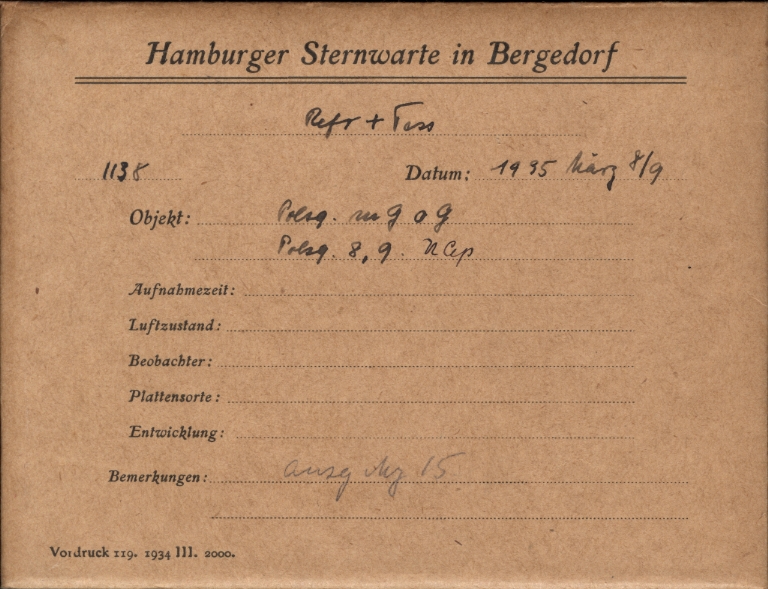 Hamburger Sternwarte in Bergedorf
Refr + Tess
1138 Datum: 1935 März 8/9
Objekt: Polsq. m g a g
Polsq. 8, 9. N Cep
Aufnahmezeit:
Luftzustand:
Beobachter:
Plattensorte:
Entwicklung:
Bemerkungen: 15
Vordruck 119. 1934 III. 2000.